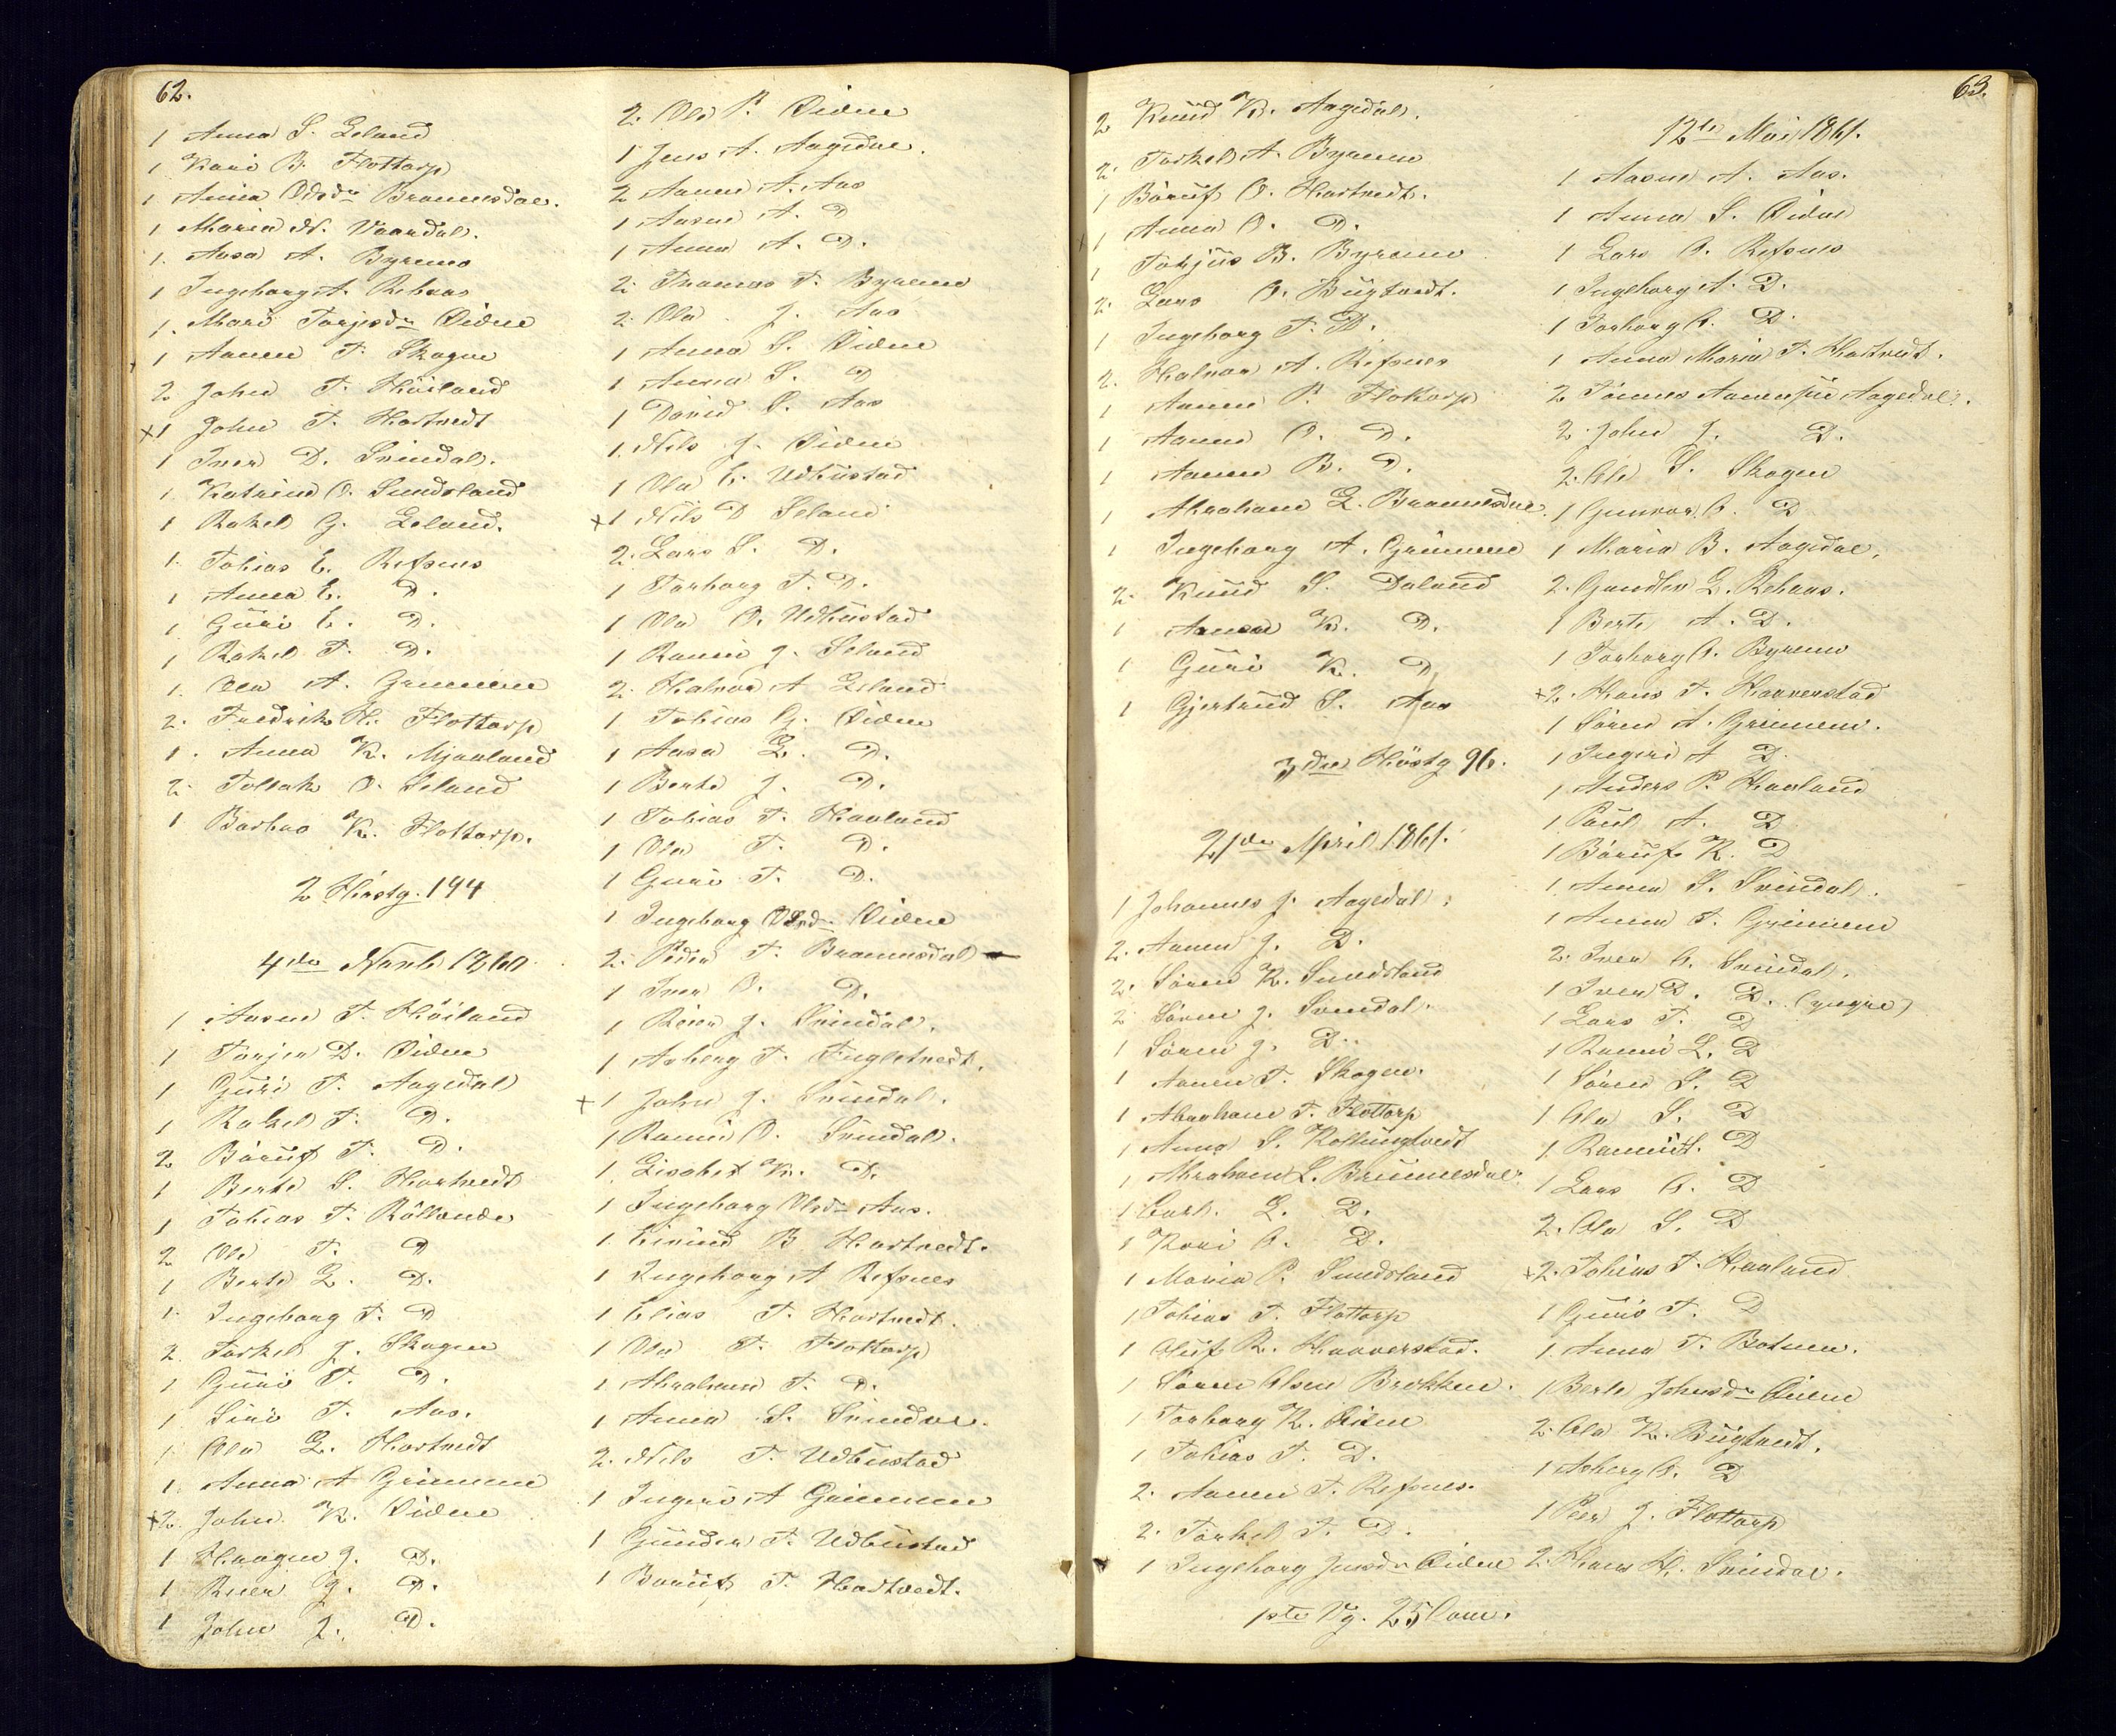 62.
1 Anna S. Leland
1 Kari B. Flottorp
1 Anna Olsdr Brannesdal.
1 Maria N. Vaardal.
1. Aasa A. Byremo
1 Ingeborg A. Rebaas
1. Mari Torjesdr Öidne
1 Aanen T. Skogen
2 John T. Höiland
x1 John T. Hartvedt
1 Iver D. Svindal.
1. Katrine O. Sundsland
1 Rakel G. Leland.
1. Tobias E. Refsnes
1 Anna E. D.
1 Guri E. D.
1 Rakel T. D.
1. Ola A. Grummen
2. Fredrik H. Flottorp
1. Anna K. Mjaaland
2. Tollak O. Seland
1 Barbro K. Flottorp.
2 Höstg. 194
4de Novb 1860
1 Aasne T. Höiland
1 Torjer D. Öidne
1 Guri T. Aagedal
1 Rakel T. D.
2 Böruf T. D.
1 Berte S. Hartvedt
1 Tobias T. Röllend
2 Ole T. D
1 Berte L. D.
1. Ingeborg T. D
2. Torkel J. Skogen
1 Guri T. D.
1 Siri T. Aas.
1 Ola L. Hartvedt
1. Anna A Grimmen
x2. John K. Öidne
1 Haagen J. D.
1 Rier J. D.
1 John J. D.
2. Ole P. Öidne
1 Jens A. Aagedal.
2 Aanen A. Aas
1 Aasne A. D
1 Anna A. D.
2. Thomas T. Byremo
2. Ola J. Aas
1 Anna S. Öidne
1 Anna S. D
1 David S. Aas
1. Nils J. Öidne
1 Ola E. Udbustad
x1 Nils D Seland
2. Lars S. D.
1 Torborg T. D.
1 Ola O. Udbustad
1 Ranni J. Seland
2. Halvor A Leland
1 Tobias G. Öidne
1 Aasa L. D.
1 Berte J. D.
1 Tobias T. Haaland
1 Ola T. D.
1 Guri T. D.
1 Ingeborg Olsdr Öidne
2. Peder T. Brannesdal
1 Iver O. D.
1 Reier J. Svindal.
1 Asberg T. Fuglestvedt.
x1 John J. Svindal.
1 Ranni O. Svindal.
1. Lisabet K. D.
1 Ingeborg Olsdr Aas.
1. Eivind B Hartvedt.
1 Ingeborg A Refsnes
1 Elias T. Hartvedt.
1 Ola T. Flottorp
1 Abraham T. D.
1 Anna S. Svindal.
2. Nils T. Udbustad
1 Ingeri A Grimmen
1 Gunder T. Udbustad
1 Böruf T. Hartvedt.
63.
2 Knud K. Aagedal.
2. Torkel A. Byremo
1 Böruf O. Hartvedt.
1 Anna O. D.
1 Torjus B. Byremo
2. Lars O. Bugtvedt.
1 Ingeborg T. D.
2. Halvor A. Refsnes
1 Aanen P. Flottorp
1 Aanen O. D.
1 Aanen B. D.
1 Abraham L. Brannesdal.
1 Ingeborg A. Grimmen
2. Knud S. Daland
1 Aanen K. D.
1 Guri K. D
1 Gjertrud S. Aas
3die Höstg 96.
21de April 1861.
1 Johannes J. Aagedal.
2. Aanen J. D.
2. Sören K. Sundsland
2 Sören J. Svendal.
1 Sören J. D.
1 Aanen T. Skogen.
1 Abraham T. Flottorp
1 Anna S. Kollungtvedt
1 Abraham L. Brunnesdal.
1 Carl. L. D.
1 Kari O. D.
1 Maria P. Sundsland
1 Tobias T. Flottorp
1 Oluf R. Haaverstad.
1 Sören Olsen Brekken.
1 Torborg K. Öidne
1 Tobias T. D.
2. Aanen T. Refsnes.
2. Torkel T. D.
1 Ingeborg Jensdr Öidne
1ste Vg. 25 Com.
12te Mai 1861.
1 Aasne A. Aas.
1 Anna S. Öidne
1 Lars O. Refsnes
1 Ingeborg A. D.
1 Torborg O. D.
1 Anna Maria T. Hartvedt.
2 Tönnes Aanensen Aagedal.
2. John J. D.
2. Ole S. Skogen
1 Gunvor O. D
1 Maria B. Aagedal.
2. Gundler L. Rebaas.
1 Berte A. D.
1 Torborg O. Byremo
x2. Hans T. Haaverstad
1 Sören A. Grimmen.
1 Ingeri A D.
1 Anders P. Haaland
1 Paul A. D
1 Böruf K. D
1. Anna S. Svindal.
1 Anna T. Grimmen
2. Iver O. Svindal.
1 Iver D. D. (yngre)
1 Lars T. D
1 Ranni L. D
1 Sören S. D
1 Ola S. D
1 Ranni T. D
1 Lars O. D
2. Ola S. D
x2. Tobias T. Haaland
1 Guri T. D
1. Anna T. Botnen.
1 Berte Johnsdr Öidne
2. Ola K. Bugtvedt.
1 Asberg O. D
1 Peer J. Flottorp
2. Hans H. Svindal.